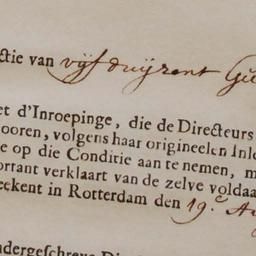 ctie van vijfduijzent Gul
et d'Inroepinge, die de Directeurs
ooren, volgens haar origineelen Inle
e op die Conditie aan te nemen, m
orrant verklaart van de zelve voldaa
eekent in Rotterdam den 19e. Au
ndergeschreve Di